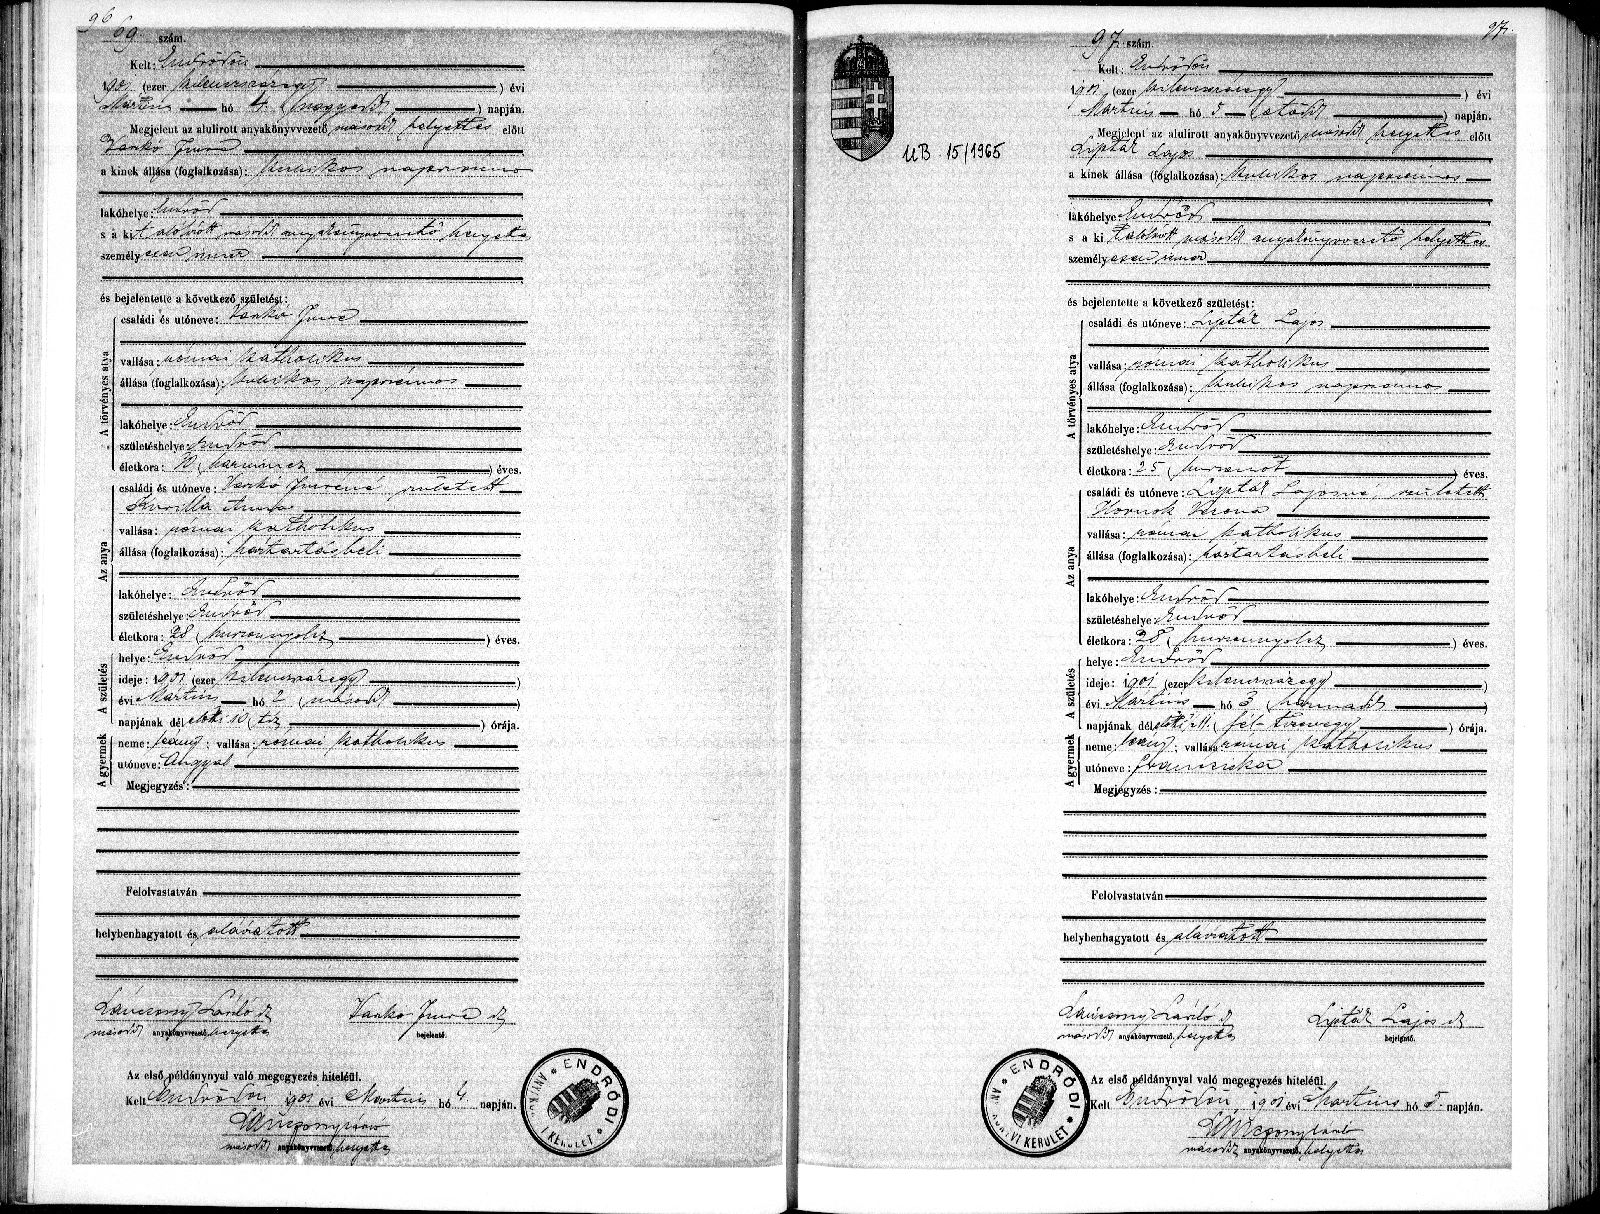 96
69 szám.
Kelt: Endrődön
1901 (ezer kilenczszázegy) évi
Martius hó 4. (negyedik) napján.
Megjelent az alulirott anyakönyvvezető másodk helyettes előtt
Vaskó Imre
a kinek állása (foglalkozása): kubikos napszámos
lakóhelye: Endrőd
s a kit alólírott másodk anyakönyvvezető helyettes
személyesen ismer
és bejelentette a következő születést:
A törvényes atya
családi és utóneve: Vaskó Imre
vallása: római katholikus
állása (foglalkozása): kubikos napszámos
lakóhelye: Endrőd
születéshelye: Endrőd
életkora: 30 (harmincz) éves.
Az anya
családi és utóneve: Vaskó Imréné, született
Kurilla Anna
vallása: római katholikus
állása (foglalkozása): háztartásbeli
lakóhelye: Endrőd
születéshelye: Endrőd
életkora: 28 (huszonnyolcz) éves.
A születés
helye: Endrőd
ideje: 1901 (ezer kilenczszázegy)
évi Martius hó 2 (második)
napjának dél előtti 10 (tiz) órája.
A gyermek
neme: leány; vallása: római katholikus
utóneve: Angyal
Megjegyzés:
Felolvastatván
helybenhagyatott és aláiratott
Lánczonyi László sk Vaskó Imre sk
másodk anyakönyvvezető. helyettes bejelentő.
Az első példánynyal való megegyezés hiteléül.
Kelt Endrődön, 1901 évi Martius hó 4 napján.
másodk anyakönyvvezető. helyettes
ENDRŐDI ANYAKÖNYVI KERÜLET
UB 15/1965
97.
97 szám.
Kelt. Endrődön
1901 (ezer kilenczszázegy) évi
Martius hó 5 (ötödik) napján.
Megjelent az alulirott anyakönyvvezető, másodk helyettes előtt
Liptár Lajos
a kinek állása (foglalkozása): kubikos napszámos
lakóhelye Endrőd
s a kit alólírott másodk anyakönyvvezető helyettes
személyesen ismer
és bejelentette a következő születést:
A törvényes atya
családi és utóneve: Liptár Lajos
vallása: római katholikus
állása (foglalkozása): kubikos napszámos
lakóhelye: Endrőd
születéshelye: Endrőd
életkora: 25 (huszonöt) éves.
Az anya
családi és utóneve: Liptár Lajosné, született
Hornok Verona
vallása: római katholikus
állása (foglalkozása): háztartásbeli
lakóhelye: Endrőd
születéshelye: Endrőd
életkora: 28 (huszonnyolcz) éves.
A születés
helye: Endrőd
ideje: 1901 (ezer kilenczszázegy)
évi Martius hó 3 (harmadik)
napjának dél előtti ½11 (fél-tizenegy) órája.
A gyermek
neme: leány; vallása római katholikus
utóneve: Francziska
Megjegyzés:
Felolvastatván
helybenhagyatott és aláiratott
Lánczonyi László sk Liptár Lajos sk
másodk anyakönyvvezető. helyettes bejelentő.
Az első példánynyal való megegyezés hiteléül.
Kelt Endrődön, 1901 évi Martius hó 5. napján.
másodk anyakönyvvezető. helyettes
ENDRŐDI ANYAKÖNYVI KERÜLET